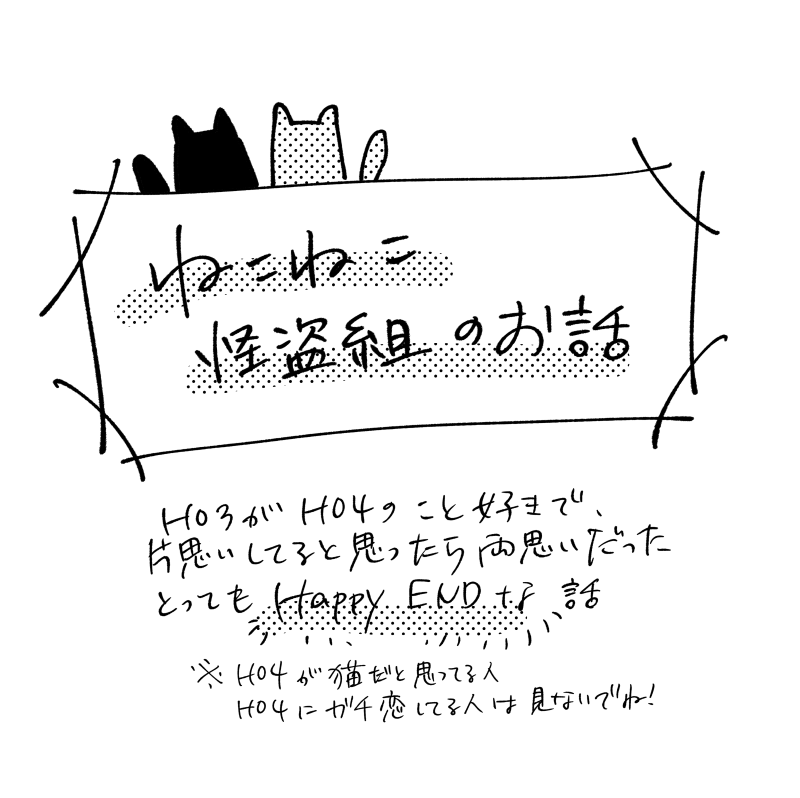 ねこねこ
怪盗組のお話
HO3がHO4のこと好きで、
片思いしてると思ったら両思いだった
とってもHappy ENDな話
※HO4が猫だと思ってる人
HO4にガチ恋してる人は見ないでね!